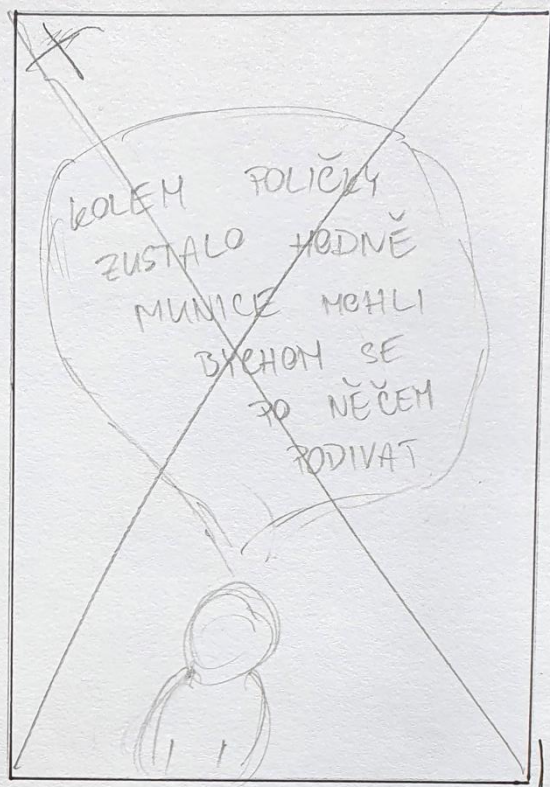 KOLEM POLIČKY
ZUSTALO HODNĚ
MUNICE MOHLI
BYCHOM SE
PO NĚČEM
PODIVAT